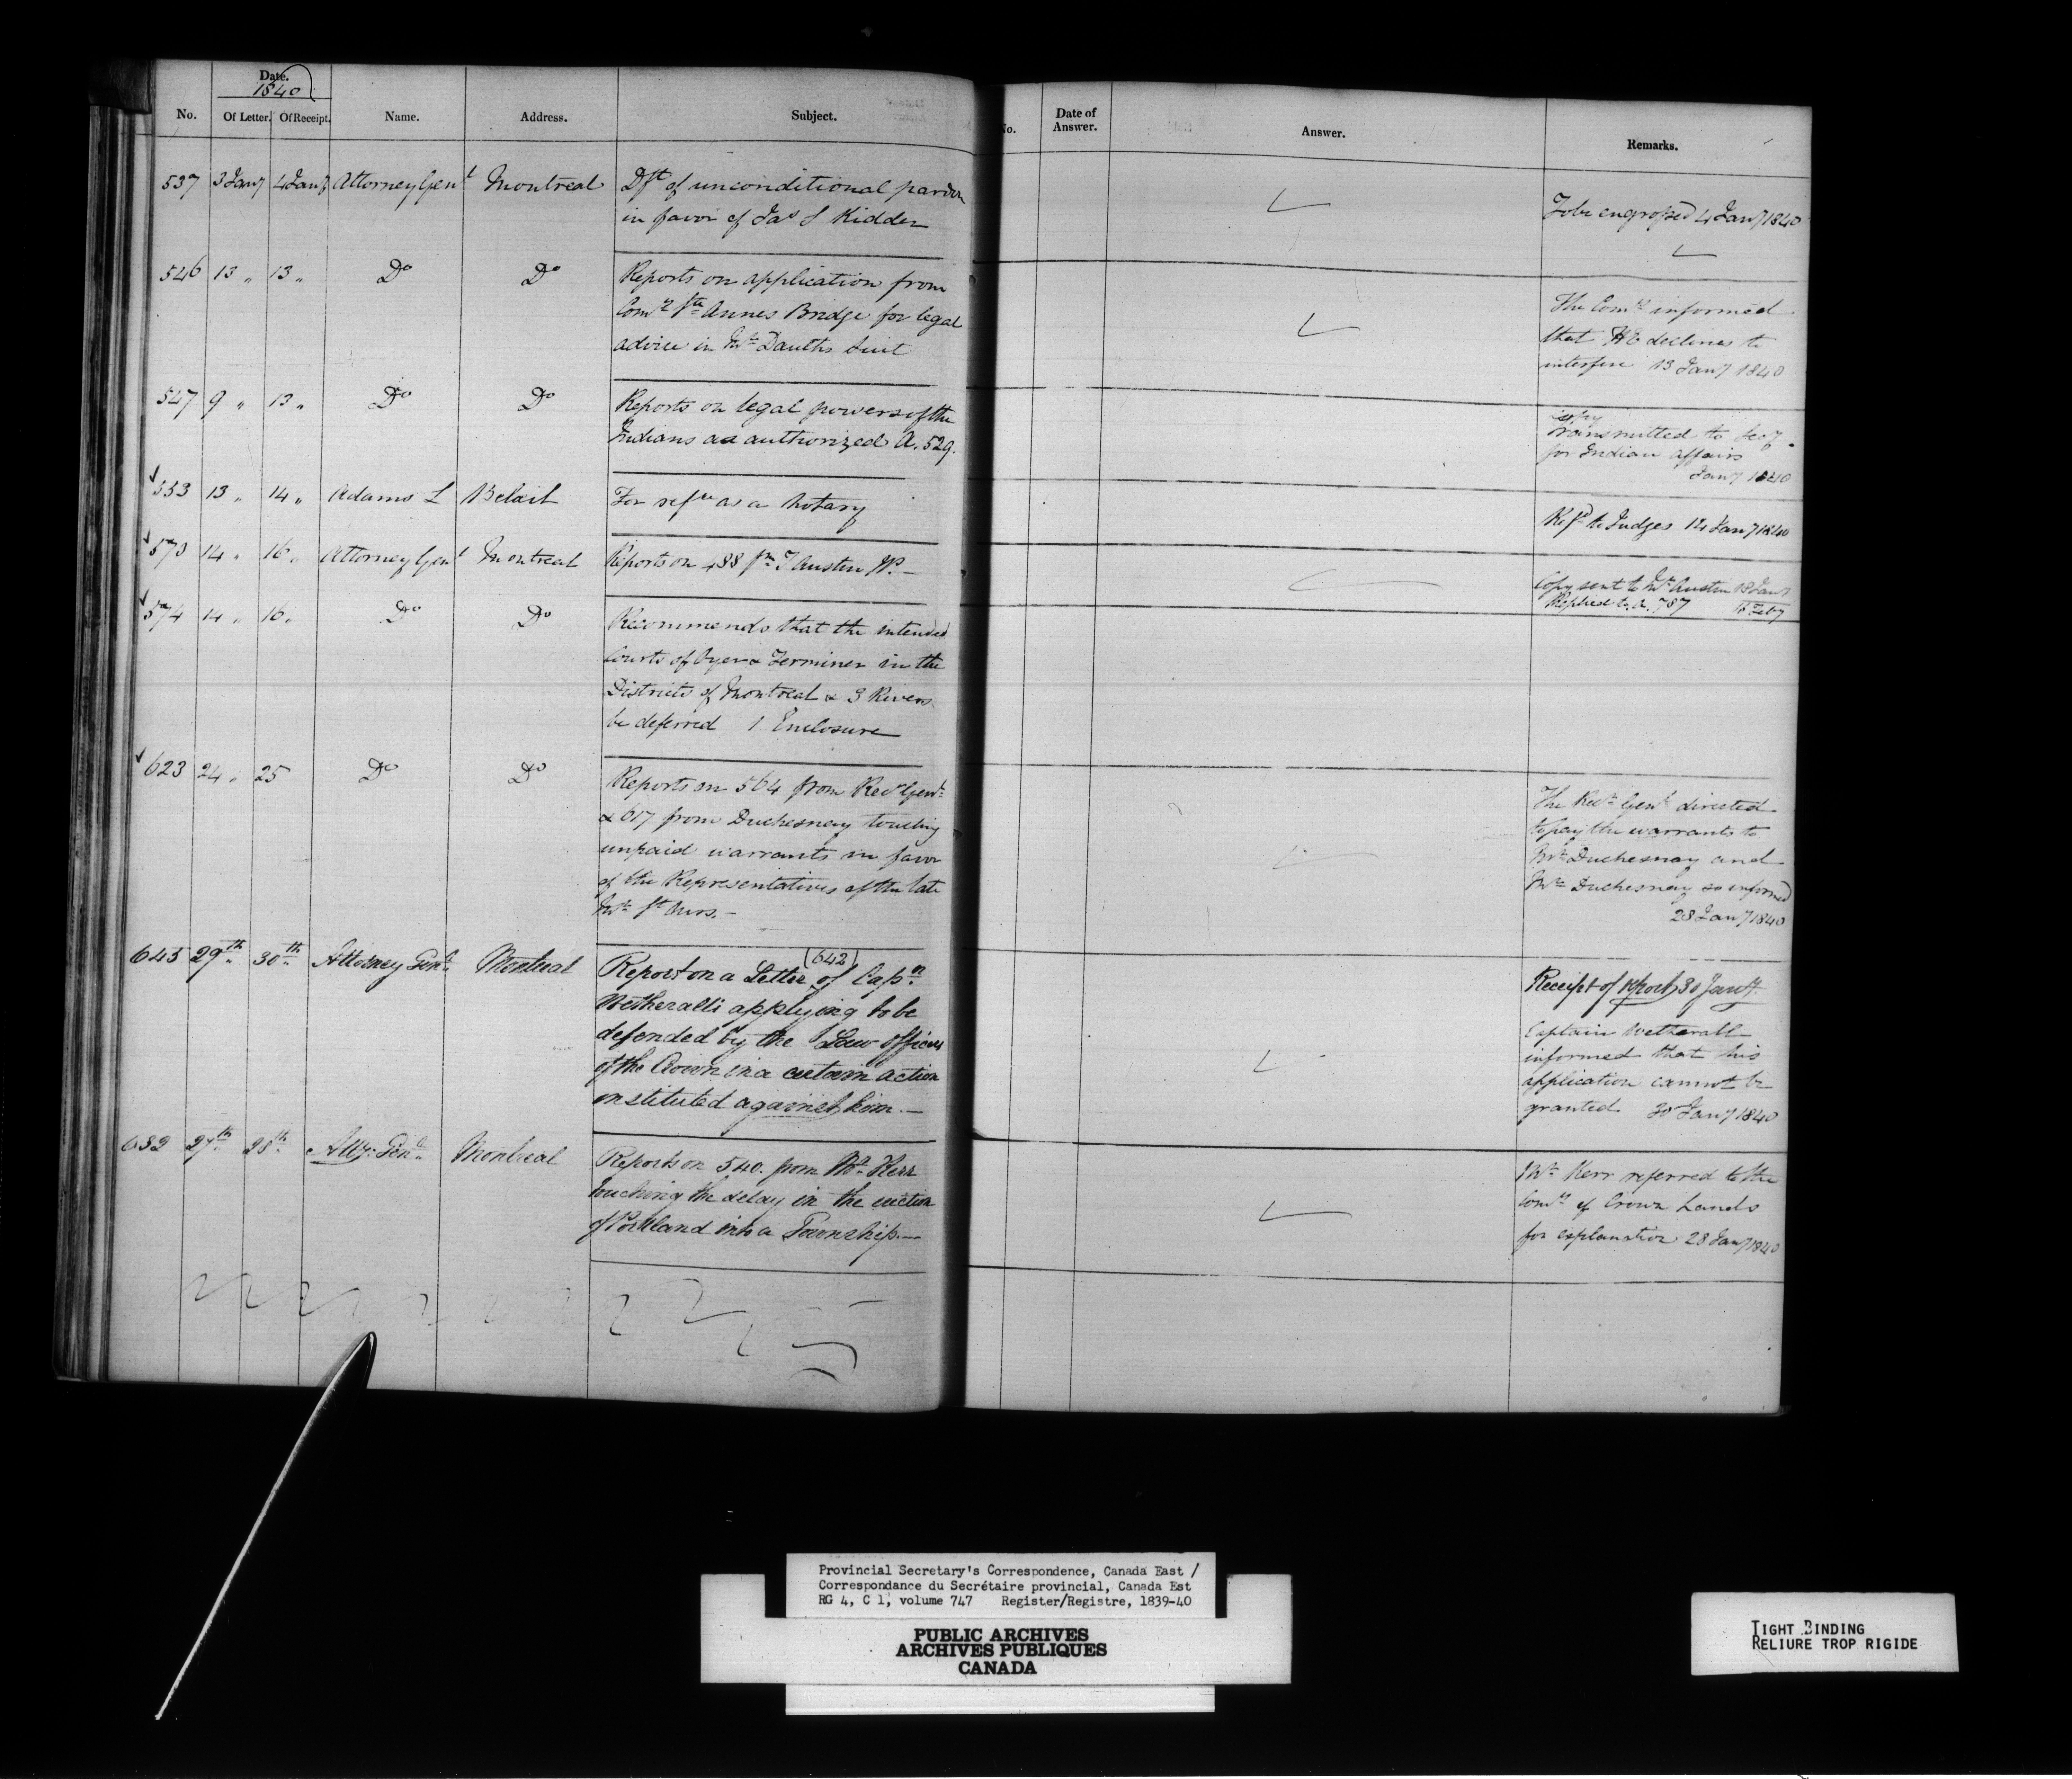 Date.
1840
No. Of Letter. Of Receipt. Name. Address. Subject.
No. Date of Answer. Answer. Remarks.
537 3 Jany 4 Jany Attorney Genl Montreal Dft of unconditional pardon
in favor of Jas S Kidder
To be engrossed 4 Jany 1840
546 13 „ 13 „ Do Do Reports on application from
Comrs Ste Annes Bridge for legal
advice in Mr Dauths Suit
The Comrs informed
that HE declines to
interfere 13 Jany 1840
547 9 „ 13 „ Do Do Reports on legal powers of the
Indians as authorized A. 529.
Copy
transmitted to Secy
for Indian affairs
Jany 1840
553 13 „ 14 „ Adams L Beloil For refce as a Notary
Refd to Judges 14 Jany 1840
573 14 „ 16 „ Attorney Genl Montreal Reports on 488 fm T Austin JP. —
Copy sent to Mr Austin 18 Jany
Replied to A. 787 18 Feby
574 14 „ 16 „ Do Do Recommends that the intended
Courts of Oyer & Terminer in the
Districts of Montreal & 3 Rivers
be deferred 1 Enclosure
623 24 „ 25 Do Do Reports on 564 from Recr Genl
& 617 from Duchesnay touching
unpaid warrants in favor
of the Representatives of the late
Mr St Ours. —
The Recr Genl directed
to pay the warrants to
Mr Duchesnay and
Mr Duchesnay so informed
28 Jany 1840
645 29th 30th Attorney Genl Montreal Report on a Letter (642) of Capn
Wetheralls applying to be
defended by the Law Officers
of the Crown in a certain action
instituted against him. —
Receipt of Report 30 Jany.
Captain Wetherall
informed that his
application cannot be
granted 30 Jany 1840
632 27th 28th Atty: Genl Montreal Reports on 540. from Mr Kerr
touching the delay in the erection
of Portland into a Township. —
Mr Kerr referred to the
Comr of Crown Lands
for explanation 28 Jany 1840
Provincial Secretary's Correspondence, Canada East /
Correspondance du Secrétaire provincial, Canada Est
RG 4, C 1, volume 747 Register/Registre, 1839-40
PUBLIC ARCHIVES
ARCHIVES PUBLIQUES
CANADA
TIGHT BINDING
RELIURE TROP RIGIDE